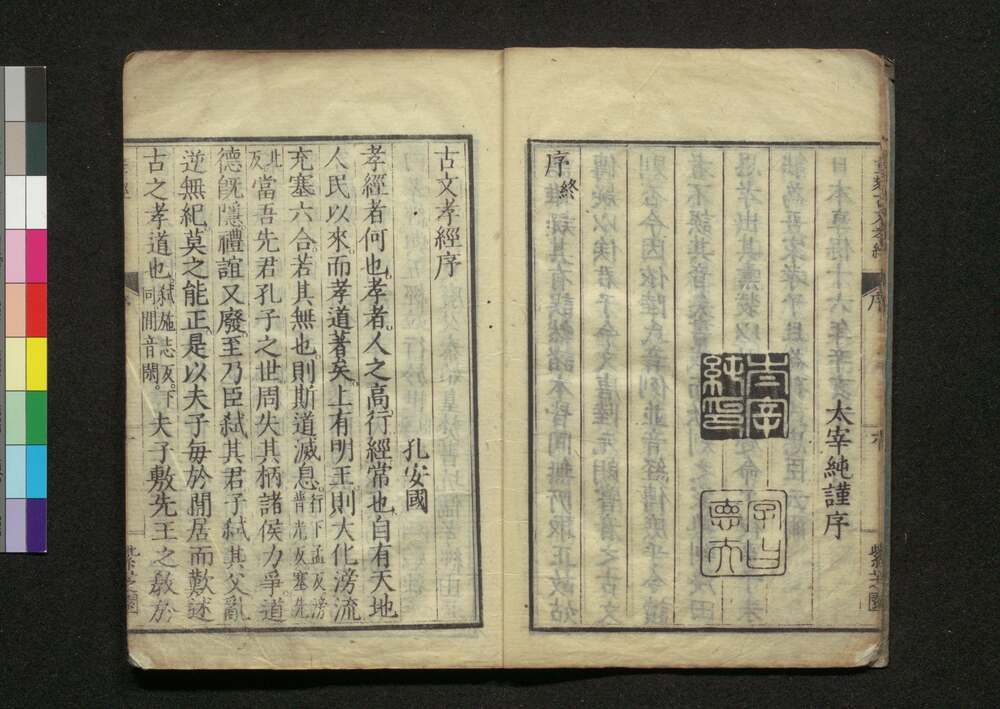 重刻古文孝經
序
紫芝園
太宰純謹序
太宰純印
字曰德夫
序終
古文孝經序
孔安國
孝經者何也。孝者。人之高行。經常也。自有天地
人民以來。而孝道著矣。上有明王。則大化滂流
充塞六合。若其無也。則斯道滅息。行下孟反滂普光反塞先
北反當吾先君孔子之世。周失其柄。諸侯力爭。道
德既隱。禮誼又廢。至乃臣弑其君。子弑其父。亂
逆無紀。莫之能正。是以夫子每於閒居而歎述
古之孝道也。弑施志反。下同閒音閑。夫子敷先王之敎於